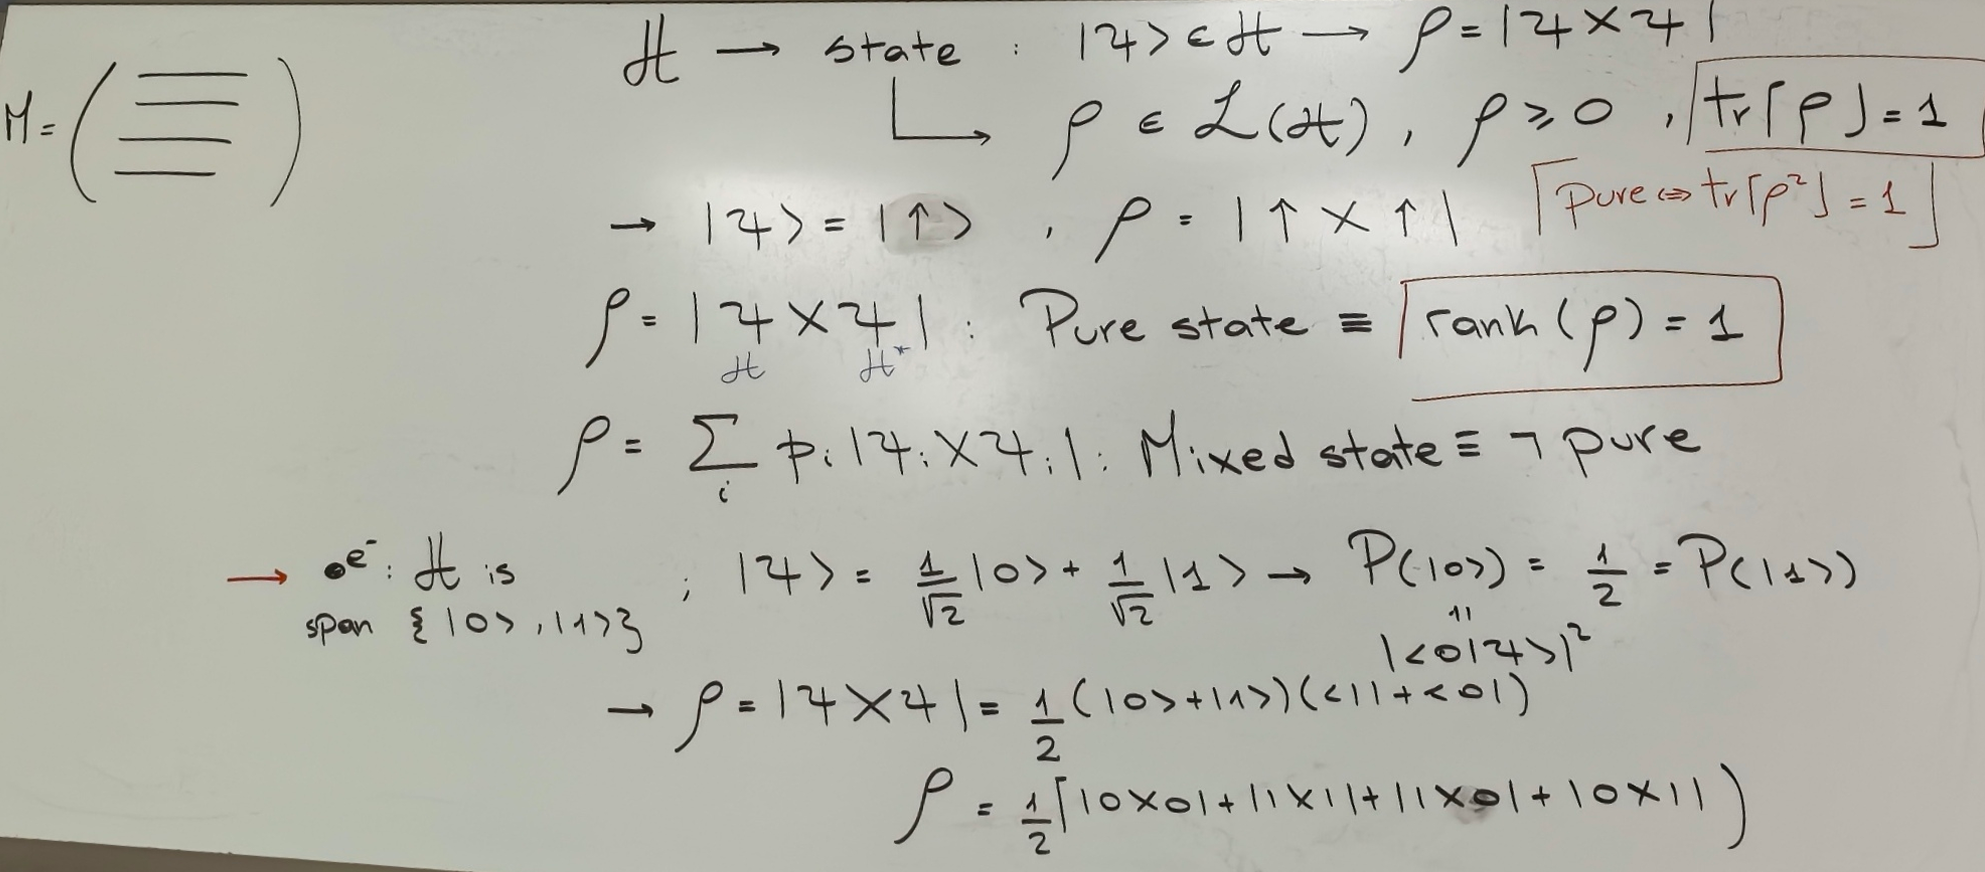 ℋ → state : |ψ> ∈ ℋ → ρ = |ψ X ψ|
M = ( )
↳ ρ ∈ ℒ(ℋ), ρ ≥ 0, tr[ρ] = 1
→ |ψ> = |↑>, ρ = |↑ X ↑| [pure ⇔ tr[ρ²] = 1]
ρ = |ψ X ψ| : Pure state ≡ rank(ρ) = 1
ℋ ℋ*
ρ = Σ_i p_i |ψ_i X ψ_i| : Mixed state ≡ ¬ pure
→ •e⁻ : ℋ is ; |ψ> = 1/√2 |0> + 1/√2 |1> → P(|0>) = 1/2 = P(|1>)
span {|0>, |1>} = |<0|ψ>|²
→ ρ = |ψ X ψ| = 1/2 (|0> + |1>)(<1| + <0|)
ρ = 1/2 [|0X0| + |1X1| + |1X0| + |0X1|)